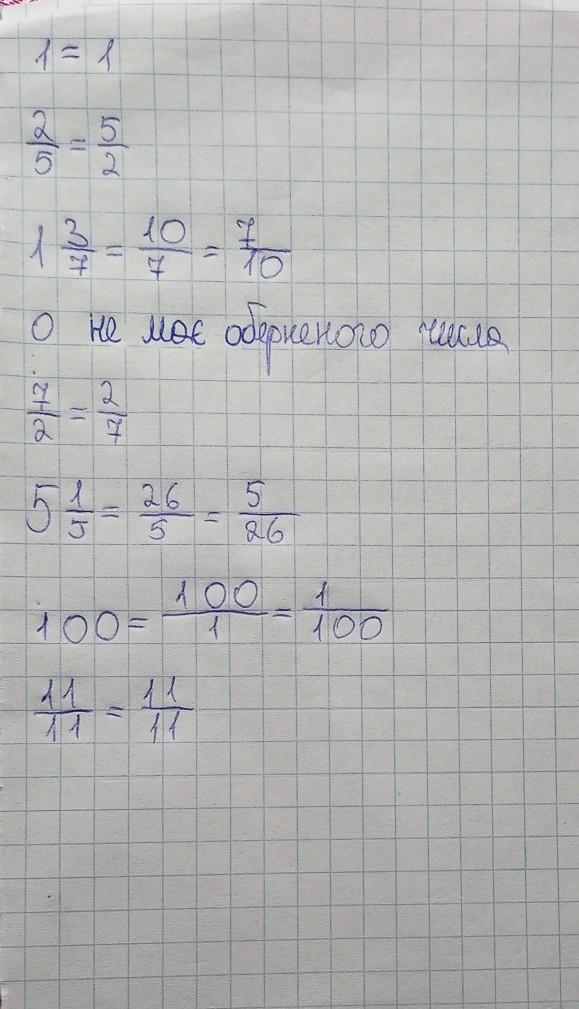 1 = 1
2/5 = 5/2
1 3/7 = 10/7 = 7/10
0 не має оберненого числа
7/2 = 2/7
5 1/5 = 26/5 = 5/26
100 = 100/1 = 1/100
11/11 = 11/11